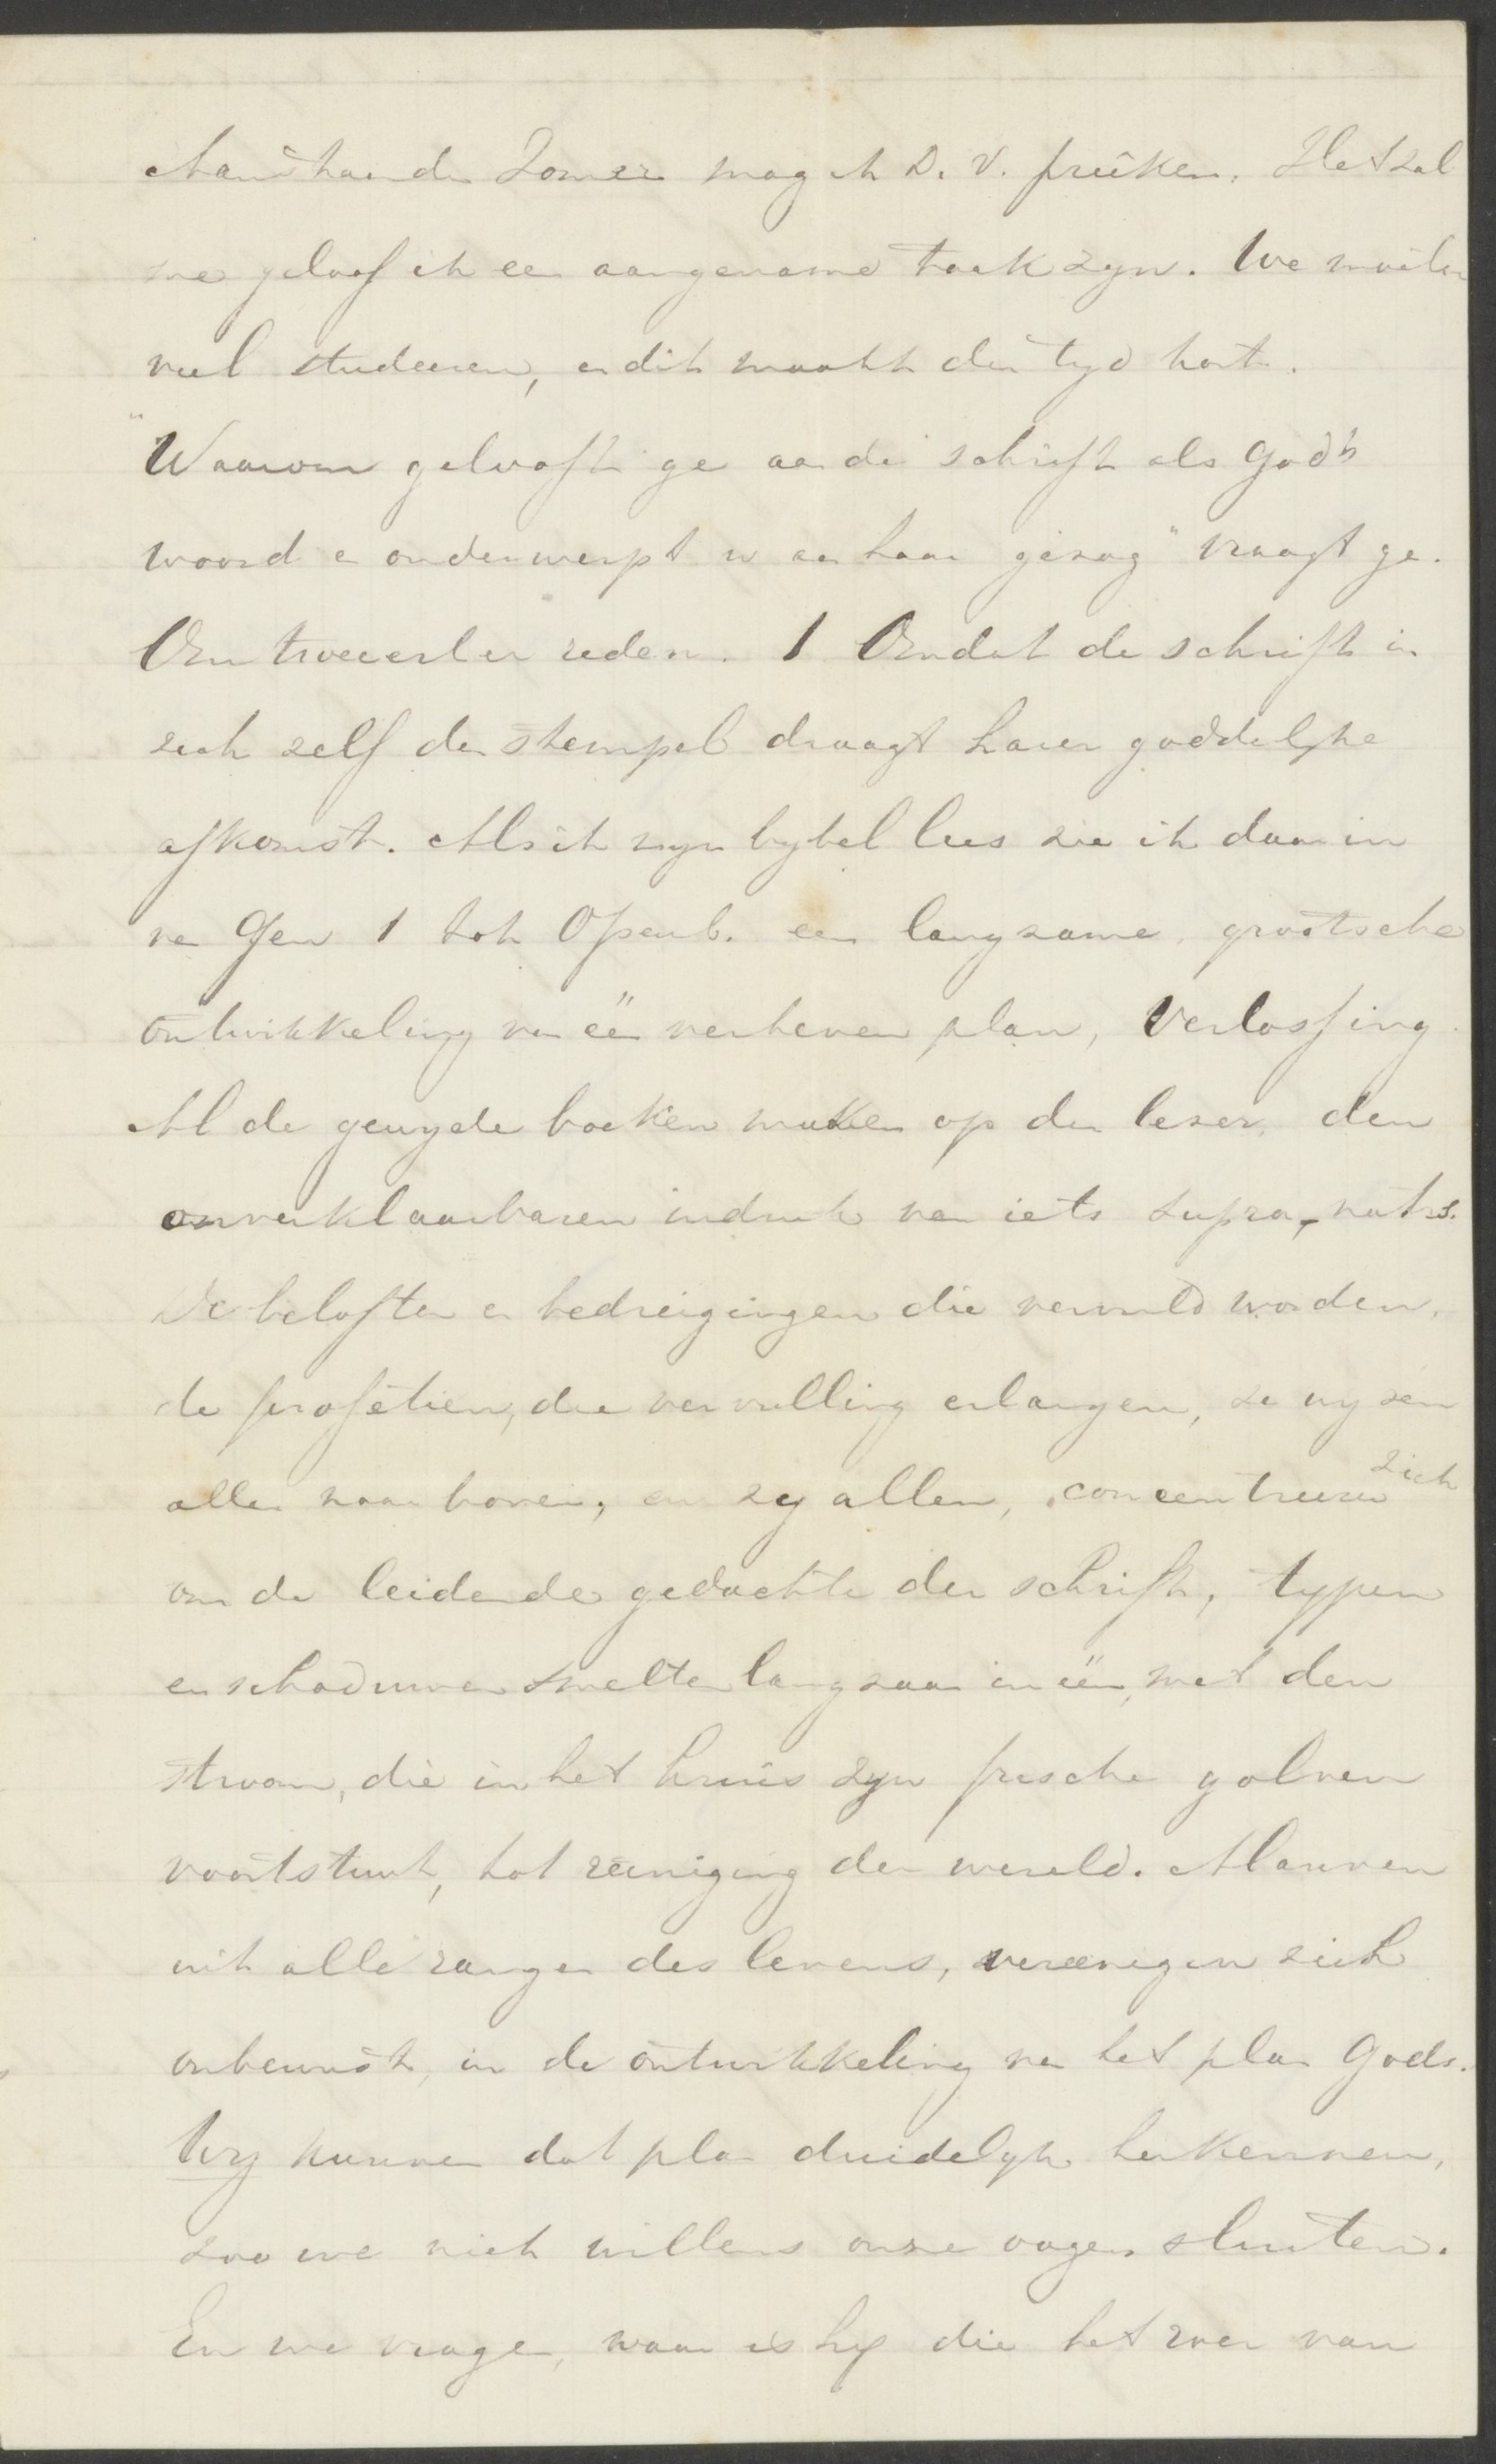 Aanstaande Zomer mag ik D. V. preêken. Het zal
me geloof ik een aangename taak zyn. We moeten
veel studeeren, en dit maakt den tyd kort.
"Waarom gelooft ge aan de schrift als God's
woord en onderwerpt u aan haar gezag" vraagt ge.
Om tweeerlei reden. 1 Omdat de schrift in
zich zelf den stempel draagt harer goddelyke
afkomst. Als ik myn bybel lees zie ik daarin
van Gen 1 tot Openb. een langzame, grootsche
ontwikkeling van één verheven plan, Verlossing.
Al de gewyde boeken maken op den lezer, den
onverklaarbaren indruk van iets supra-natrs.
De beloften en bedreigingen die vervuld worden,
de profetien, die vervulling erlangen, ze wyzen
allen naar boven, en zy allen, concentreeren zich
om de leidende gedachte der schrift, typen
en schaduwen smelten langzaam in één, met den
stroom, die in het kruis zyn frissche golven
voortstuwt, tot reiniging der wereld. Mannen
uit alle rangen des levens, vereenigen zich
onbewust, in de ontwikkeling van het plan Gods.
Wy kunnen dat plan duidelyk herkennen,
zoo we niet willens onze oogen sluiten.
En we vragen, waar is hy die het zoo van